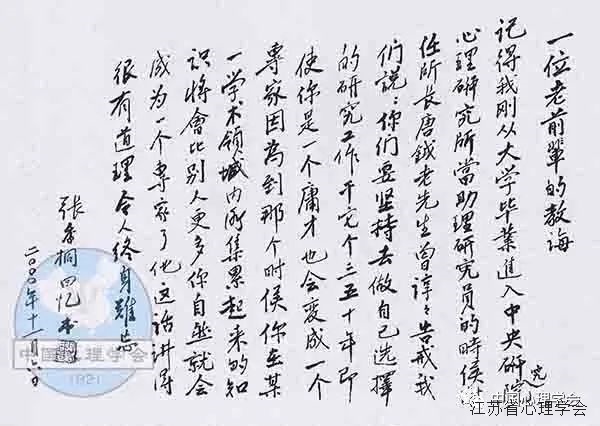 一位老前辈的教诲
记得我刚从大学毕業進入中央研究院
心理研究所當助理研究員的時侯
任所长唐鉞老先生曾諄々告戒我
们说：你们要坚持去做自己选擇
的研究工作干它个三五十年即
使你是一个庸才也会变成一个
專家因為到那个时侯你在某
一学术领域内所集累起来的知
识将會比别人更多你自然就会
成为一个專家了他这话讲得
很有道理令人终身难忘
张香桐回忆
二000年十一月六日
中国心理学会
1921
中国心理学会
江苏省心理学会